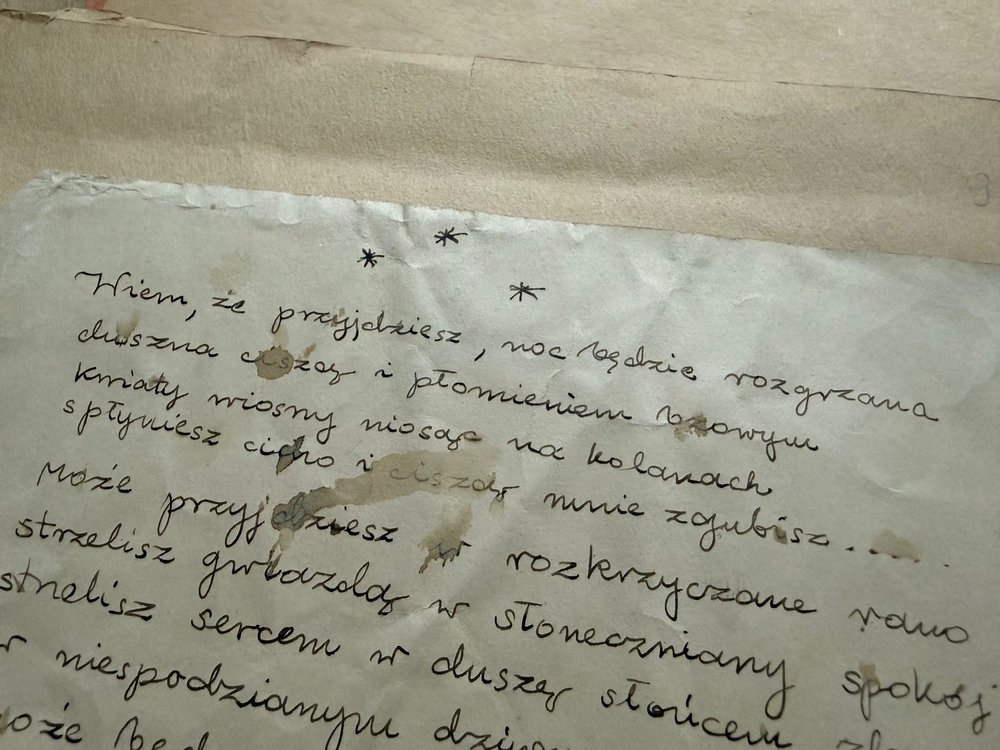 * * *
Wiem, że przyjdziesz, noc będzie rozgrzana
duszna ciszą i płomieniem bzowym
kwiaty wiosny niosąc na kolanach
spłyniesz cicho i ciszą mnie zgubisz....
Może przyjdziesz w rozkrzyczane rano
strzelisz gwiazdą w słoneczniany spokój
strzelisz sercem w duszę słońcem
w niespodzianym